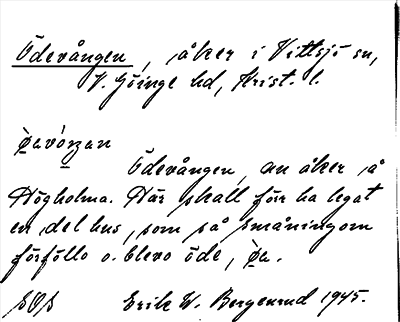 Ödevången, åker i Vittsjö sn,
V. Göinge hd, Krist. l.
Ödevången, en åker å
Högholma. Här skall förr ha legat
en del hus, som så småningom
förföllo o. blevo öde,
Erik W. Bergenrud 1945.